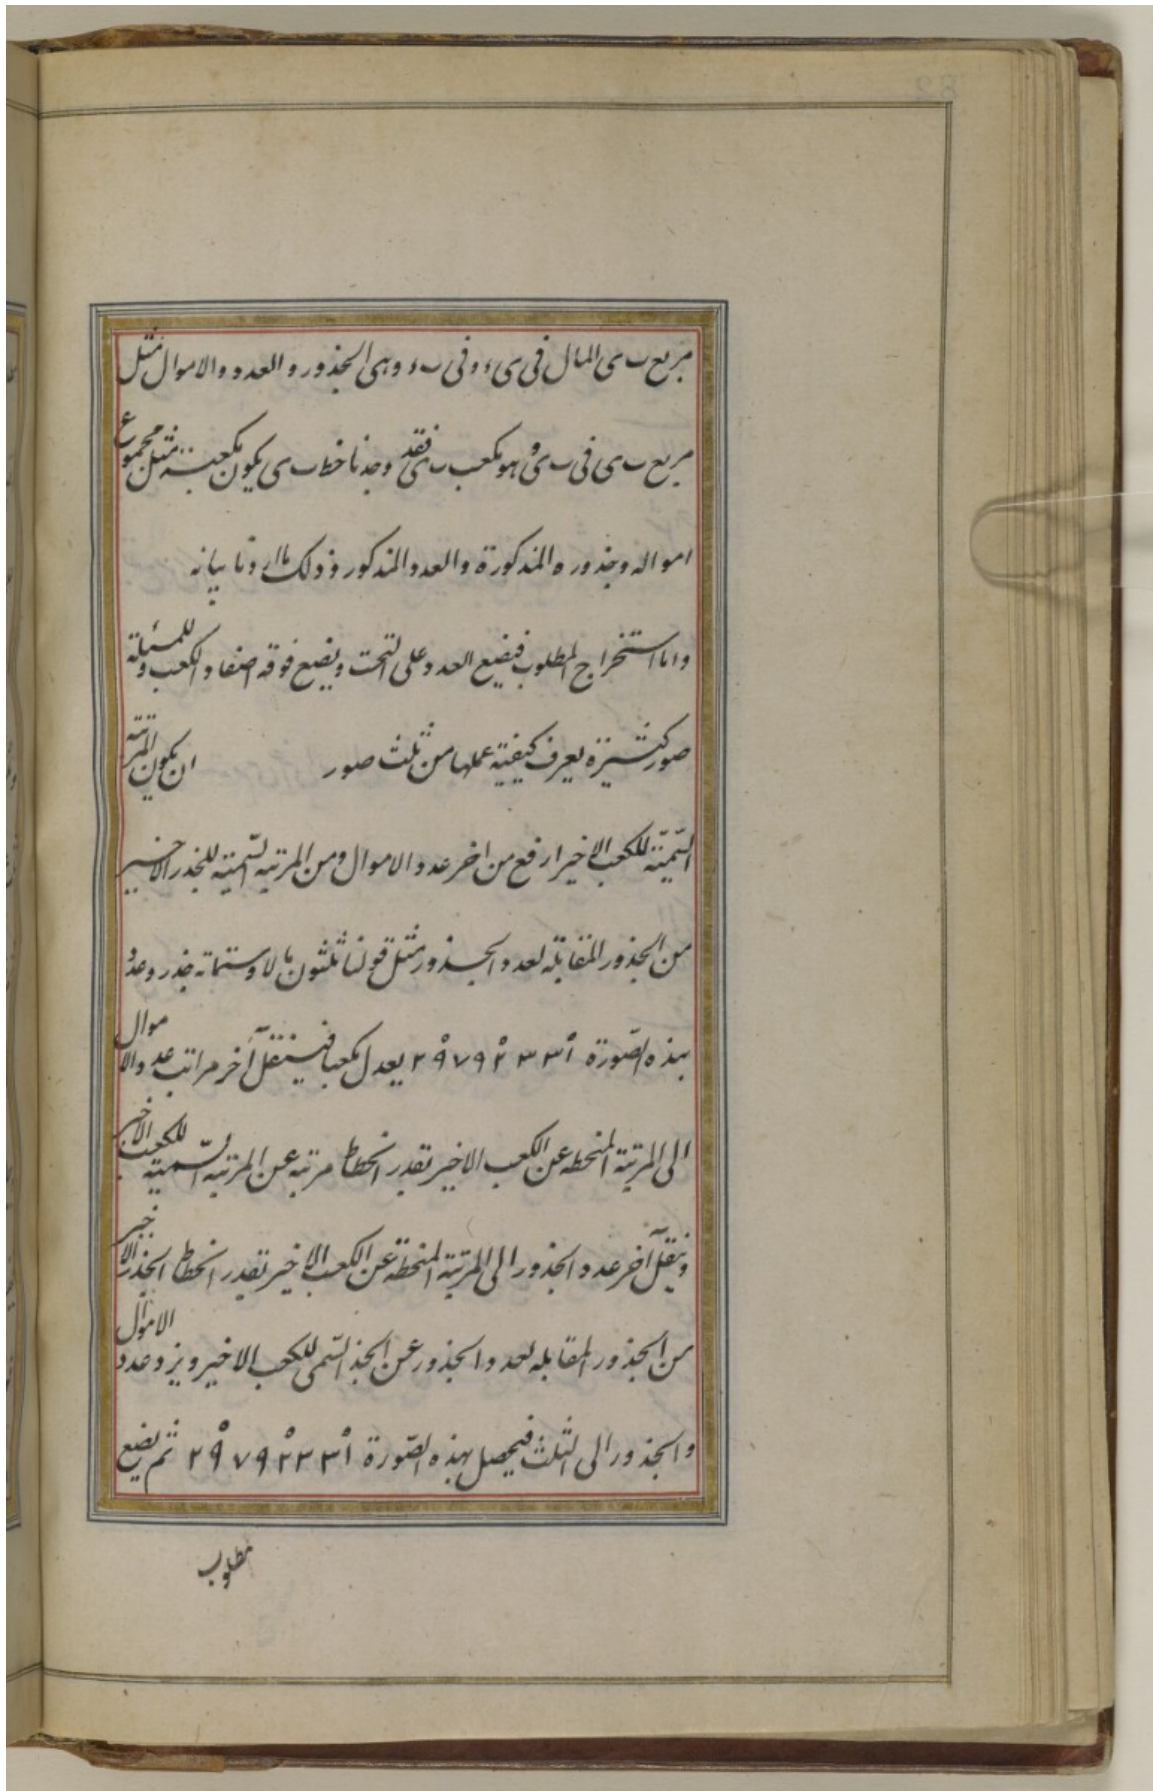 مربع ب ى المال فى ىء وفى ب ء وهى الجذور والعدد والاموال مثل
مربع ب ى فى ب ى وهو مكعب ب ى فقد وجدنا خط ب ى يكون مكعبة مثل مجموع
امواله وجذوره المذكورة والعدد المذكور وذلك ما اردنا بيانه
واما استخراج المطلوب فيضع العدد على التخت ويضع فوقه اصفاد الكعب وللمسئلة
صور كثيرة يعرف كيفية عملها من ثلث صور ان يكون المرتبة
السّميّة للكعب الاخير ارفع من اخر عدد الاموال ومن المرتبه السّمية للجذر الاخير
من الجذور المقابلة لعدد الجذور مثل قولنا ثلثون مالا وستمائه جذر وعدد
بهذه الصّورة ٢٩٧٩٢٣٣١ يعدل مكعبا فينتقل آخر مراتب عدد الاموال
الى المرتبة المنحطه عن الكعب الاخير بقدر انحطاط مرتبه عن المرتبه السّمية للكعب الاخير
وينقل آخر عدد الجذور الى المرتبة المنحطة عن الكعب الاخير بقدر انحطاط الجذر الاخير
من الجذور المقابله لعدد الجذور عن الجذر السّمى للكعب الاخير ويزد عدد الاموال
والجذور الى الثلث فيحصل بهذه الصّورة ٢٩٧٩٢٣٣١ ثم يضع
مطلوب